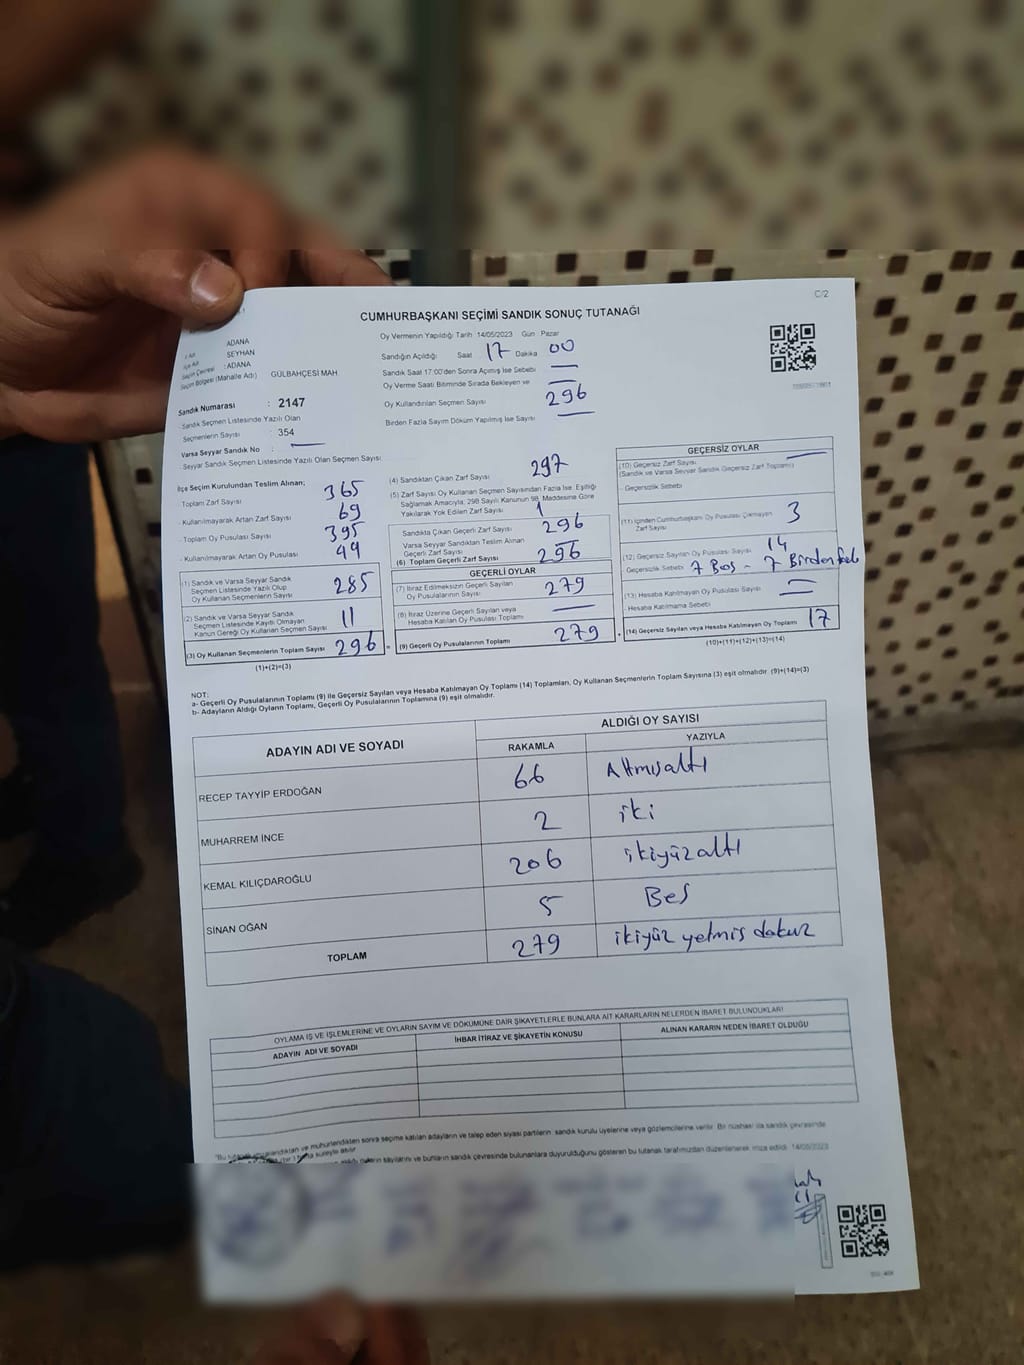 C/2
CUMHURBAŞKANI SEÇİMİ SANDIK SONUÇ TUTANAĞI
Oy Vermenin Yapıldığı Tarih :14/05/2023 Gün : Pazar
ADANA
SEYHAN
: ADANA
Seçim Bölgesi (Mahalle Adı) GÜLBAHÇESİ MAH.
Sandık Numarası : 2147
Sandık Seçmen Listesinde Yazılı Olan
Seçmenlerin Sayısı : 354
Varsa Seyyar Sandık No :
- Seyyar Sandık Seçmen Listesinde Yazılı Olan Seçmen Sayısı
Sandığın Açıldığı Saat 17 Dakika 00
Sandık Saat 17:00'den Sonra Açımış İse Sebebi
Oy Verme Saati Bitiminde Sırada Bekleyen ve
Oy Kullandırılan Seçmen Sayısı 296
Birden Fazla Sayım Döküm Yapılmış İse Sayısı
İlçe Seçim Kurulundan Teslim Alınan;
Toplam Zarf Sayısı 365
- Kullanılmayarak Artan Zarf Sayısı 69
- Toplam Oy Pusulası Sayısı 395
- Kullanılmayarak Artan Oy Pusulası 44
(1) Sandık ve Varsa Seyyar Sandık
Seçmen Listesinde Yazılı Olup
Oy Kullanan Seçmenlerin Sayısı 285
(2) Sandık ve Varsa Seyyar Sandık
Seçmen Listesinde Kayıtlı Olmayan
Kanun Gereği Oy Kullanan Seçmen Sayısı 11
(3) Oy Kullanan Seçmenlerin Toplam Sayısı 296 =
(1)+(2)=(3)
(4) Sandıktan Çıkan Zarf Sayısı 297
(5) Zarf Sayısı Oy Kullanan Seçmen Sayısından Fazla İse, Eşitliği
Sağlamak Amacıyla; 298 Sayılı Kanunun 98. Maddesine Göre
Yakılarak Yok Edilen Zarf Sayısı 1
Sandıkta Çıkan Geçerli Zarf Sayısı 296
Varsa Seyyar Sandıktan Teslim Alınan
Geçerli Zarf Sayısı
(6) Toplam Geçerli Zarf Sayısı 296
GEÇERLİ OYLAR
(7) İtiraz Edilmeksizin Geçerli Sayılan
Oy Pusulalarının Sayısı 279
(8) İtiraz Üzerine Geçerli Sayılan veya
Hesaba Katılan Oy Pusulası Toplamı
(9) Geçerli Oy Pusulalarının Toplamı 279 +
GEÇERSİZ OYLAR
(10) Geçersiz Zarf Sayısı
(Sandık ve Varsa Seyyar Sandık Geçersiz Zarf Toplamı)
- Geçersizlik Sebebi
(11) İçinden Cumhurbaşkanı Oy Pusulası Çıkmayan
Zarf Sayısı 3
(12) Geçersiz Sayılan Oy Pusulası Sayısı 14
Geçersizlik Sebebi 7 Boş - 7 Birden fazla
(13) Hesaba Katılmayan Oy Pusulası Sayısı
- Hesaba Katılmama Sebebi
(14) Geçersiz Sayılan veya Hesaba Katılmayan Oy Toplamı 17
(10)+(11)+(12)+(13)=(14)
NOT:
a- Geçerli Oy Pusulalarının Toplamı (9) ile Geçersiz Sayılan veya Hesaba Katılmayan Oy Toplamı (14) Toplamları, Oy Kullanan Seçmenlerin Toplam Sayısına (3) eşit olmalıdır. (9)+(14)=(3)
b- Adayların Aldığı Oyların Toplamı, Geçerli Oy Pusulalarının Toplamına (9) eşit olmalıdır.
ADAYIN ADI VE SOYADI
ALDIĞI OY SAYISI
RAKAMLA YAZIYLA
RECEP TAYYİP ERDOĞAN 66 Altmışaltı
MUHARREM İNCE 2 iki
KEMAL KILIÇDAROĞLU 206 ikiyüzaltı
SİNAN OĞAN 5 Beş
TOPLAM 279 ikiyüz yetmiş dokuz
OYLAMA İŞ VE İŞLEMLERİNE VE OYLARIN SAYIM VE DÖKÜMÜNE DAİR ŞİKAYETLERLE BUNLARA AİT KARARLARIN NELERDEN İBARET BULUNDUKLARI
ADAYIN ADI VE SOYADI İHBAR İTİRAZ VE ŞİKAYETİN KONUSU ALINAN KARARIN NEDEN İBARET OLDUĞU
ve mühürlendikten sonra seçime katılan adayların ve talep eden siyasi partilerin sandık kurulu üyelerine veya gözlemcilerine verilir. Bir nüshası da sandık çevresinde
süreyle asılır.
oyların sayılarını ve bunların sandık çevresinde bulunanlara duyurulduğunu gösteren bu tutanak tarafımızdan düzenlenerek imza edildi. 14/05/2023